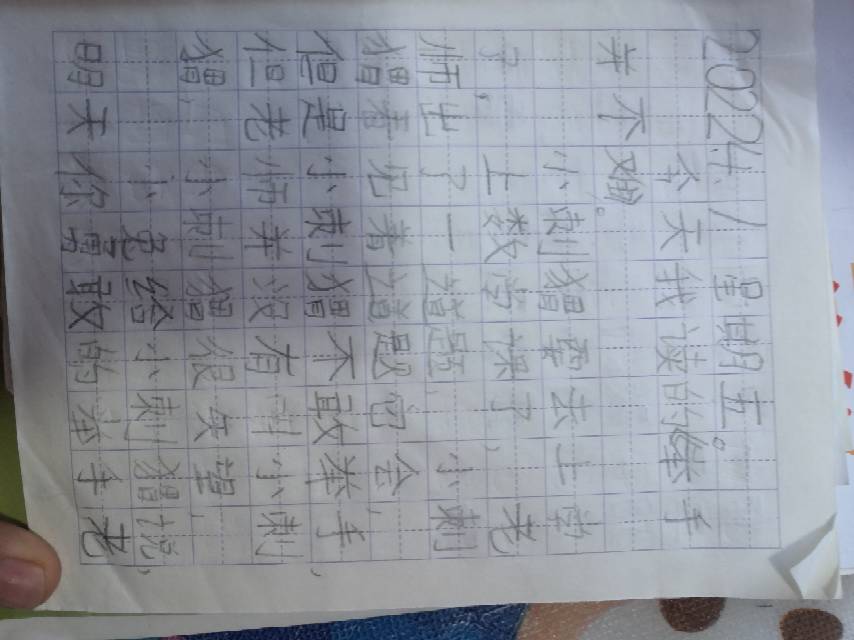 2022.4.1 星期五。
今天我读的举手
并不难。
小刺猬要去上学
了，上数学课了，老
师出了一道题，小刺
猬看见着道题它会，
但是小刺猬不敢举手，
但老师并没有叫小刺
猬，小刺猬很失望，
小兔给小刺猬说，
明天你勇敢的举手老